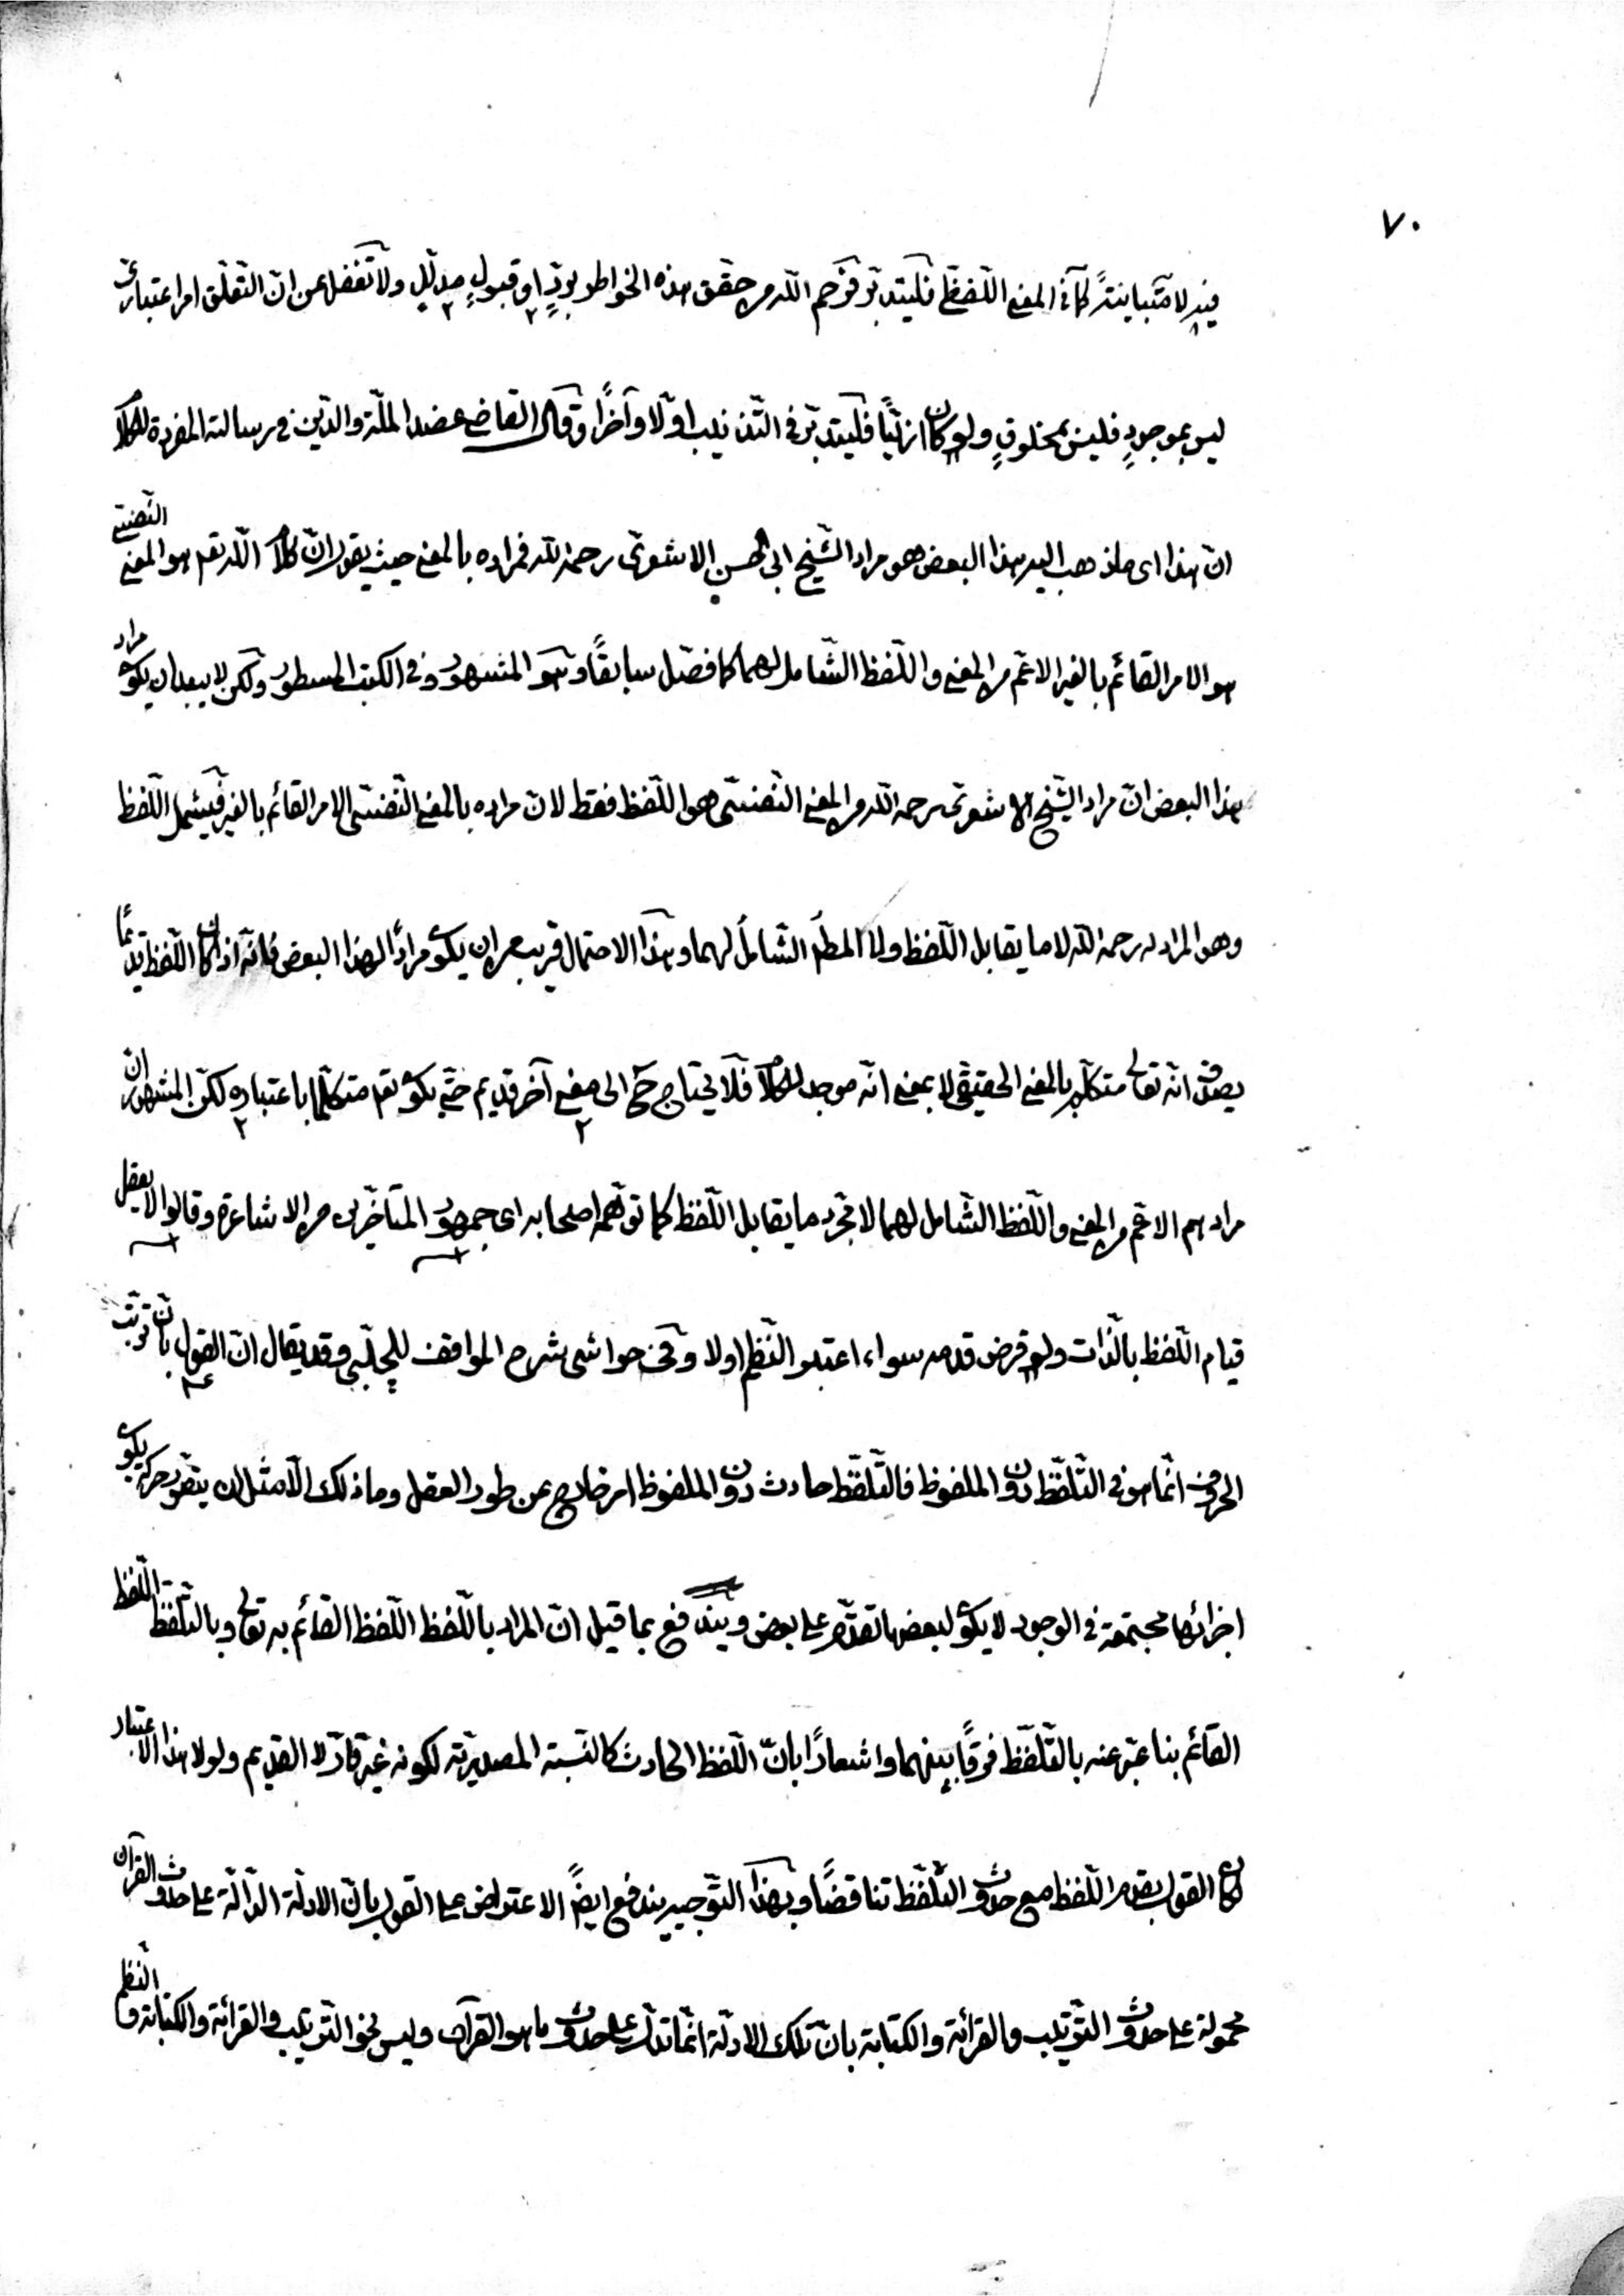 ٧٠
فيه لا متباينة كما في المعنى اللّفظيّ فليتدبّر فرحم اللّه من حقّق هذه الخواطر بردٍّ او قبولٍ مدلّلٍ ولا تغفل عن انّ التّعلّق امر اعتباريّ
ليس بموجودٍ فليس بمخلوقٍ ولو كان ازليًّا فليتدبّر في التّذنيب اوّلا وآخرًا وقال القاضي عضد الملّة والدّين في رسالته المفردة للكلام
انّ هذا اى ما ذهب اليه هذا البعض هو مراد الشّيخ ابى الحسن الاشعرى رحمه اللّه فمراده بالمعنى حيث يقول انّ كلام اللّه تعم هو المعنى النّفسيّ
هو الامر القائم بالغير الاعمّ من المعنى واللّفظ الشّامل لهما كما فصّل سابقًا وهو المشهور وفى الكتب المسطور ولكن لا يبعد ان يكون مراد
هذا البعض انّ مراد الشّيخ الاشعرى رحمه اللّه من المعنى النّفسيّ هو اللّفظ فقط لانّ مراده بالمعنى النّفسيّ الامر القائم بالغير فيشمل اللّفظ
وهو المراد له رحمه اللّه لا ما يقابل اللّفظ ولا المطلق الشّامل لهما وهذا الاحتمال قريب من ان يكون مرادًا لهذا البعض فانّه اذا كان اللّفظ قديمًا
يصدق انّه تعالى متكلّم بالمعنى الحقيقى لا بمعنى انّه موجد للكلام فلا يحتاج ح الى معنى آخر قديم حتى يكون تعم متكلّما باعتباره لكنّ المشهور انّ
مرادهم الاعمّ من المعنى واللّفظ الشّامل لهما لا مجرّد ما يقابل اللّفظ كما توهّمه اصحابه اى جمهور المتأخّرين من الاشاعرة وقالوا لا يعقل
قيام اللّفظ بالذّات ولو فرض قدمه سواء اعتبر النّظم اولا وفى حواشى شرح المواقف للچلبى وقد يقال انّ القول بانّ ترتّب
الحروف انّما هو فى التّلفّظ دون الملفوظ فالتّلفّظ حادث دون الملفوظ امر خارج عن طور العقل وما ذلك الّا مثل ان يتصوّر حركة يكون
اجزائها مجتمعة فى الوجود لا يكون لبعضها تقدّم على بعض ويندفع بما قيل انّ المراد باللّفظ اللّفظ القائم به تعالى وبالتّلفّظ اللّفظ
القائم بنا عبّر عنه بالتّلفّظ فرقًا بينهما واشعارًا بانّ اللّفظ الحادث كالنّسبة المصدريّة لكونه غير قارّ لا القديم ولولا هذا الاعتبار
كان القول بقدم اللّفظ مع حدوث التّلفّظ تناقضًا وبهذا التّوجيه يندفع ايضًا الاعتراض على القول بانّ الادلّة الدّالّة على حدوث القرآن
محمولة على حدوث التّرتيب والقرائة والكتابة بانّ تلك الادلّة انّما تدلّ على حدوث ما هو القرآن وليس نحو التّرتيب والقرائة والكتابة والنّظم